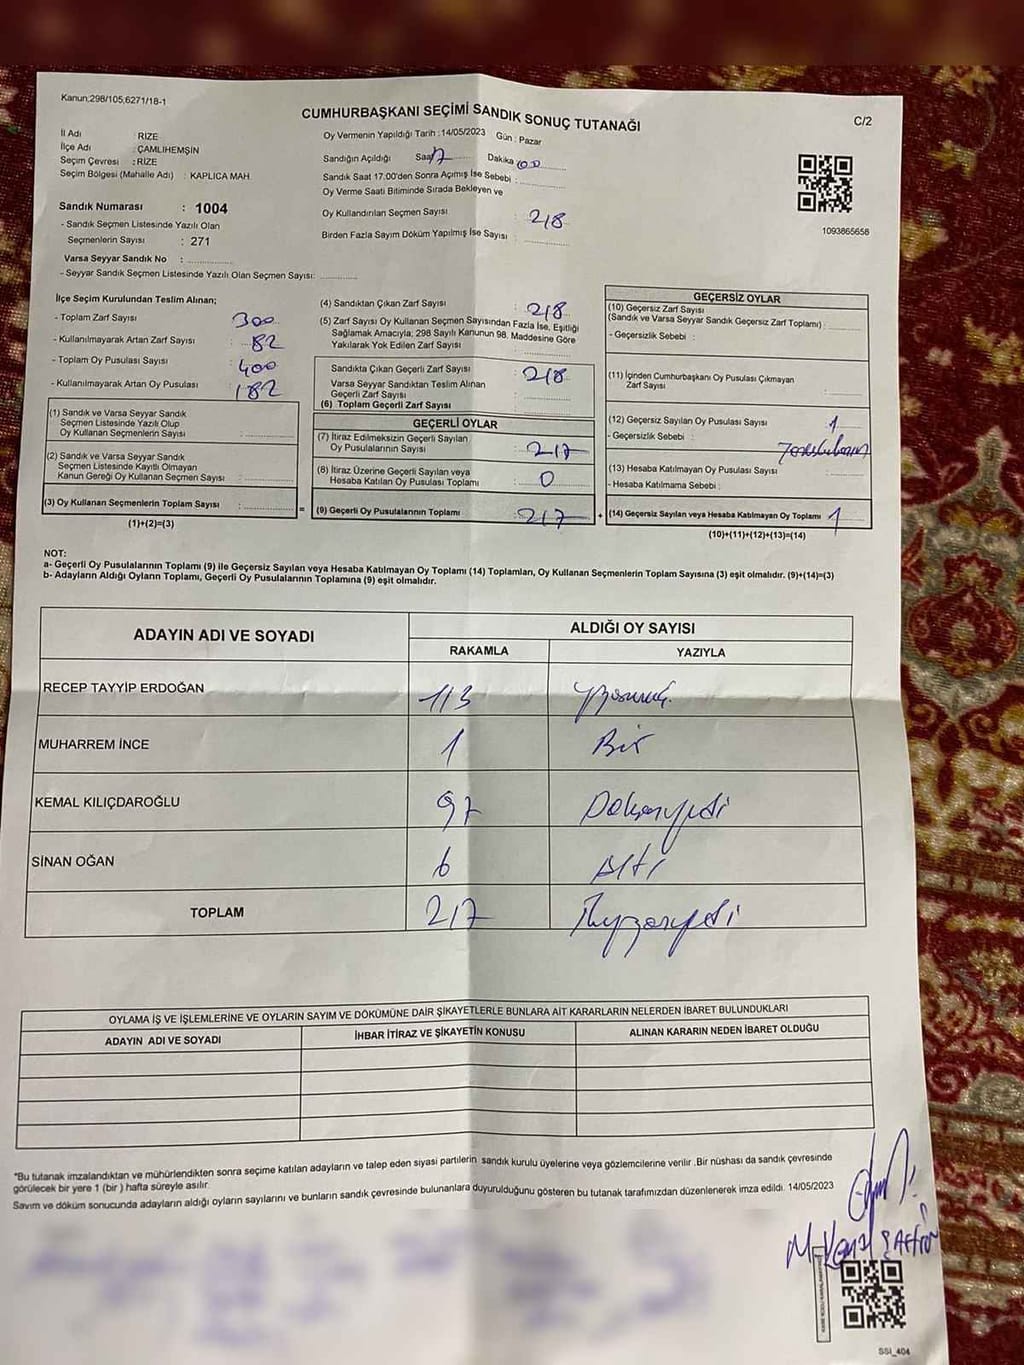 Kanun;298/105;6271/18-1
CUMHURBAŞKANI SEÇİMİ SANDIK SONUÇ TUTANAĞI
C/2
İl Adı : RİZE
İlçe Adı : ÇAMLIHEMŞİN
Seçim Çevresi : RİZE
Seçim Bölgesi (Mahalle Adı) : KAPLICA MAH.
Sandık Numarası : 1004
- Sandık Seçmen Listesinde Yazılı Olan
Seçmenlerin Sayısı : 271
Varsa Seyyar Sandık No :
- Seyyar Sandık Seçmen Listesinde Yazılı Olan Seçmen Sayısı:
Oy Vermenin Yapıldığı Tarih : 14/05/2023 Gün : Pazar
Sandığın Açıldığı Saat 17 Dakika 00
Sandık Saat 17.00'den Sonra Açımış İse Sebebi :
Oy Verme Saati Bitiminde Sırada Bekleyen ve
Oy Kullandırılan Seçmen Sayısı : 218
Birden Fazla Sayım Döküm Yapılmış İse Sayısı :
1093865656
İlçe Seçim Kurulundan Teslim Alınan;
- Toplam Zarf Sayısı : 300
- Kullanılmayarak Artan Zarf Sayısı : 82
- Toplam Oy Pusulası Sayısı : 400
- Kullanılmayarak Artan Oy Pusulası : 182
(1) Sandık ve Varsa Seyyar Sandık
Seçmen Listesinde Yazılı Olup
Oy Kullanan Seçmenlerin Sayısı :
(2) Sandık ve Varsa Seyyar Sandık
Seçmen Listesinde Kayıtlı Olmayan
Kanun Gereği Oy Kullanan Seçmen Sayısı :
(3) Oy Kullanan Seçmenlerin Toplam Sayısı :
(1)+(2)=(3)
=
(4) Sandıktan Çıkan Zarf Sayısı : 218
(5) Zarf Sayısı Oy Kullanan Seçmen Sayısından Fazla İse, Eşitliği
Sağlamak Amacıyla, 298 Sayılı Kanunun 98. Maddesine Göre
Yakılarak Yok Edilen Zarf Sayısı :
Sandıkta Çıkan Geçerli Zarf Sayısı : 218
Varsa Seyyar Sandıktan Teslim Alınan
Geçerli Zarf Sayısı :
(6) Toplam Geçerli Zarf Sayısı :
GEÇERLİ OYLAR
(7) İtiraz Edilmeksizin Geçerli Sayılan
Oy Pusulalarının Sayısı : 217
(8) İtiraz Üzerine Geçerli Sayılan veya
Hesaba Katılan Oy Pusulası Toplamı : 0
(9) Geçerli Oy Pusulalarının Toplamı : 217
+
GEÇERSİZ OYLAR
(10) Geçersiz Zarf Sayısı
(Sandık ve Varsa Seyyar Sandık Geçersiz Zarf Toplamı) :
- Geçersizlik Sebebi :
(11) İçinden Cumhurbaşkanı Oy Pusulası Çıkmayan
Zarf Sayısı :
(12) Geçersiz Sayılan Oy Pusulası Sayısı : 1
- Geçersizlik Sebebi :
(13) Hesaba Katılmayan Oy Pusulası Sayısı :
- Hesaba Katılmama Sebebi :
(14) Geçersiz Sayılan veya Hesaba Katılmayan Oy Toplamı 1
(10)+(11)+(12)+(13)=(14)
NOT:
a- Geçerli Oy Pusulalarının Toplamı (9) ile Geçersiz Sayılan veya Hesaba Katılmayan Oy Toplamı (14) Toplamları, Oy Kullanan Seçmenlerin Toplam Sayısına (3) eşit olmalıdır. (9)+(14)=(3)
b- Adayların Aldığı Oyların Toplamı, Geçerli Oy Pusulalarının Toplamına (9) eşit olmalıdır.
ADAYIN ADI VE SOYADI ALDIĞI OY SAYISI
RAKAMLA YAZIYLA
RECEP TAYYİP ERDOĞAN 113
MUHARREM İNCE 1 Bir
KEMAL KILIÇDAROĞLU 97 Doksanyedi
SİNAN OĞAN 6 Altı
TOPLAM 217
OYLAMA İŞ VE İŞLEMLERİNE VE OYLARIN SAYIM VE DÖKÜMÜNE DAİR ŞİKAYETLERLE BUNLARA AİT KARARLARIN NELERDEN İBARET BULUNDUKLARI
ADAYIN ADI VE SOYADI İHBAR İTİRAZ VE ŞİKAYETİN KONUSU ALINAN KARARIN NEDEN İBARET OLDUĞU
*Bu tutanak imzalandıktan ve mühürlendikten sonra seçime katılan adayların ve talep eden siyasi partilerin sandık kurulu üyelerine veya gözlemcilerine verilir. Bir nüshası da sandık çevresinde
görülecek bir yere 1 (bir) hafta süreyle asılır.
Sayım ve döküm sonucunda adayların aldığı oyların sayılarını ve bunların sandık çevresinde bulunanlara duyurulduğunu gösteren bu tutanak tarafımızdan düzenlenerek imza edildi. 14/05/2023
SSI_404